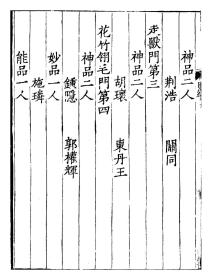 神品二人
荆浩　關同
走獸門第三
神品二人
胡瓌　東丹王
花竹翎毛門第四
神品二人
鍾隱　郭權輝
妙品一人
施璘
能品一人